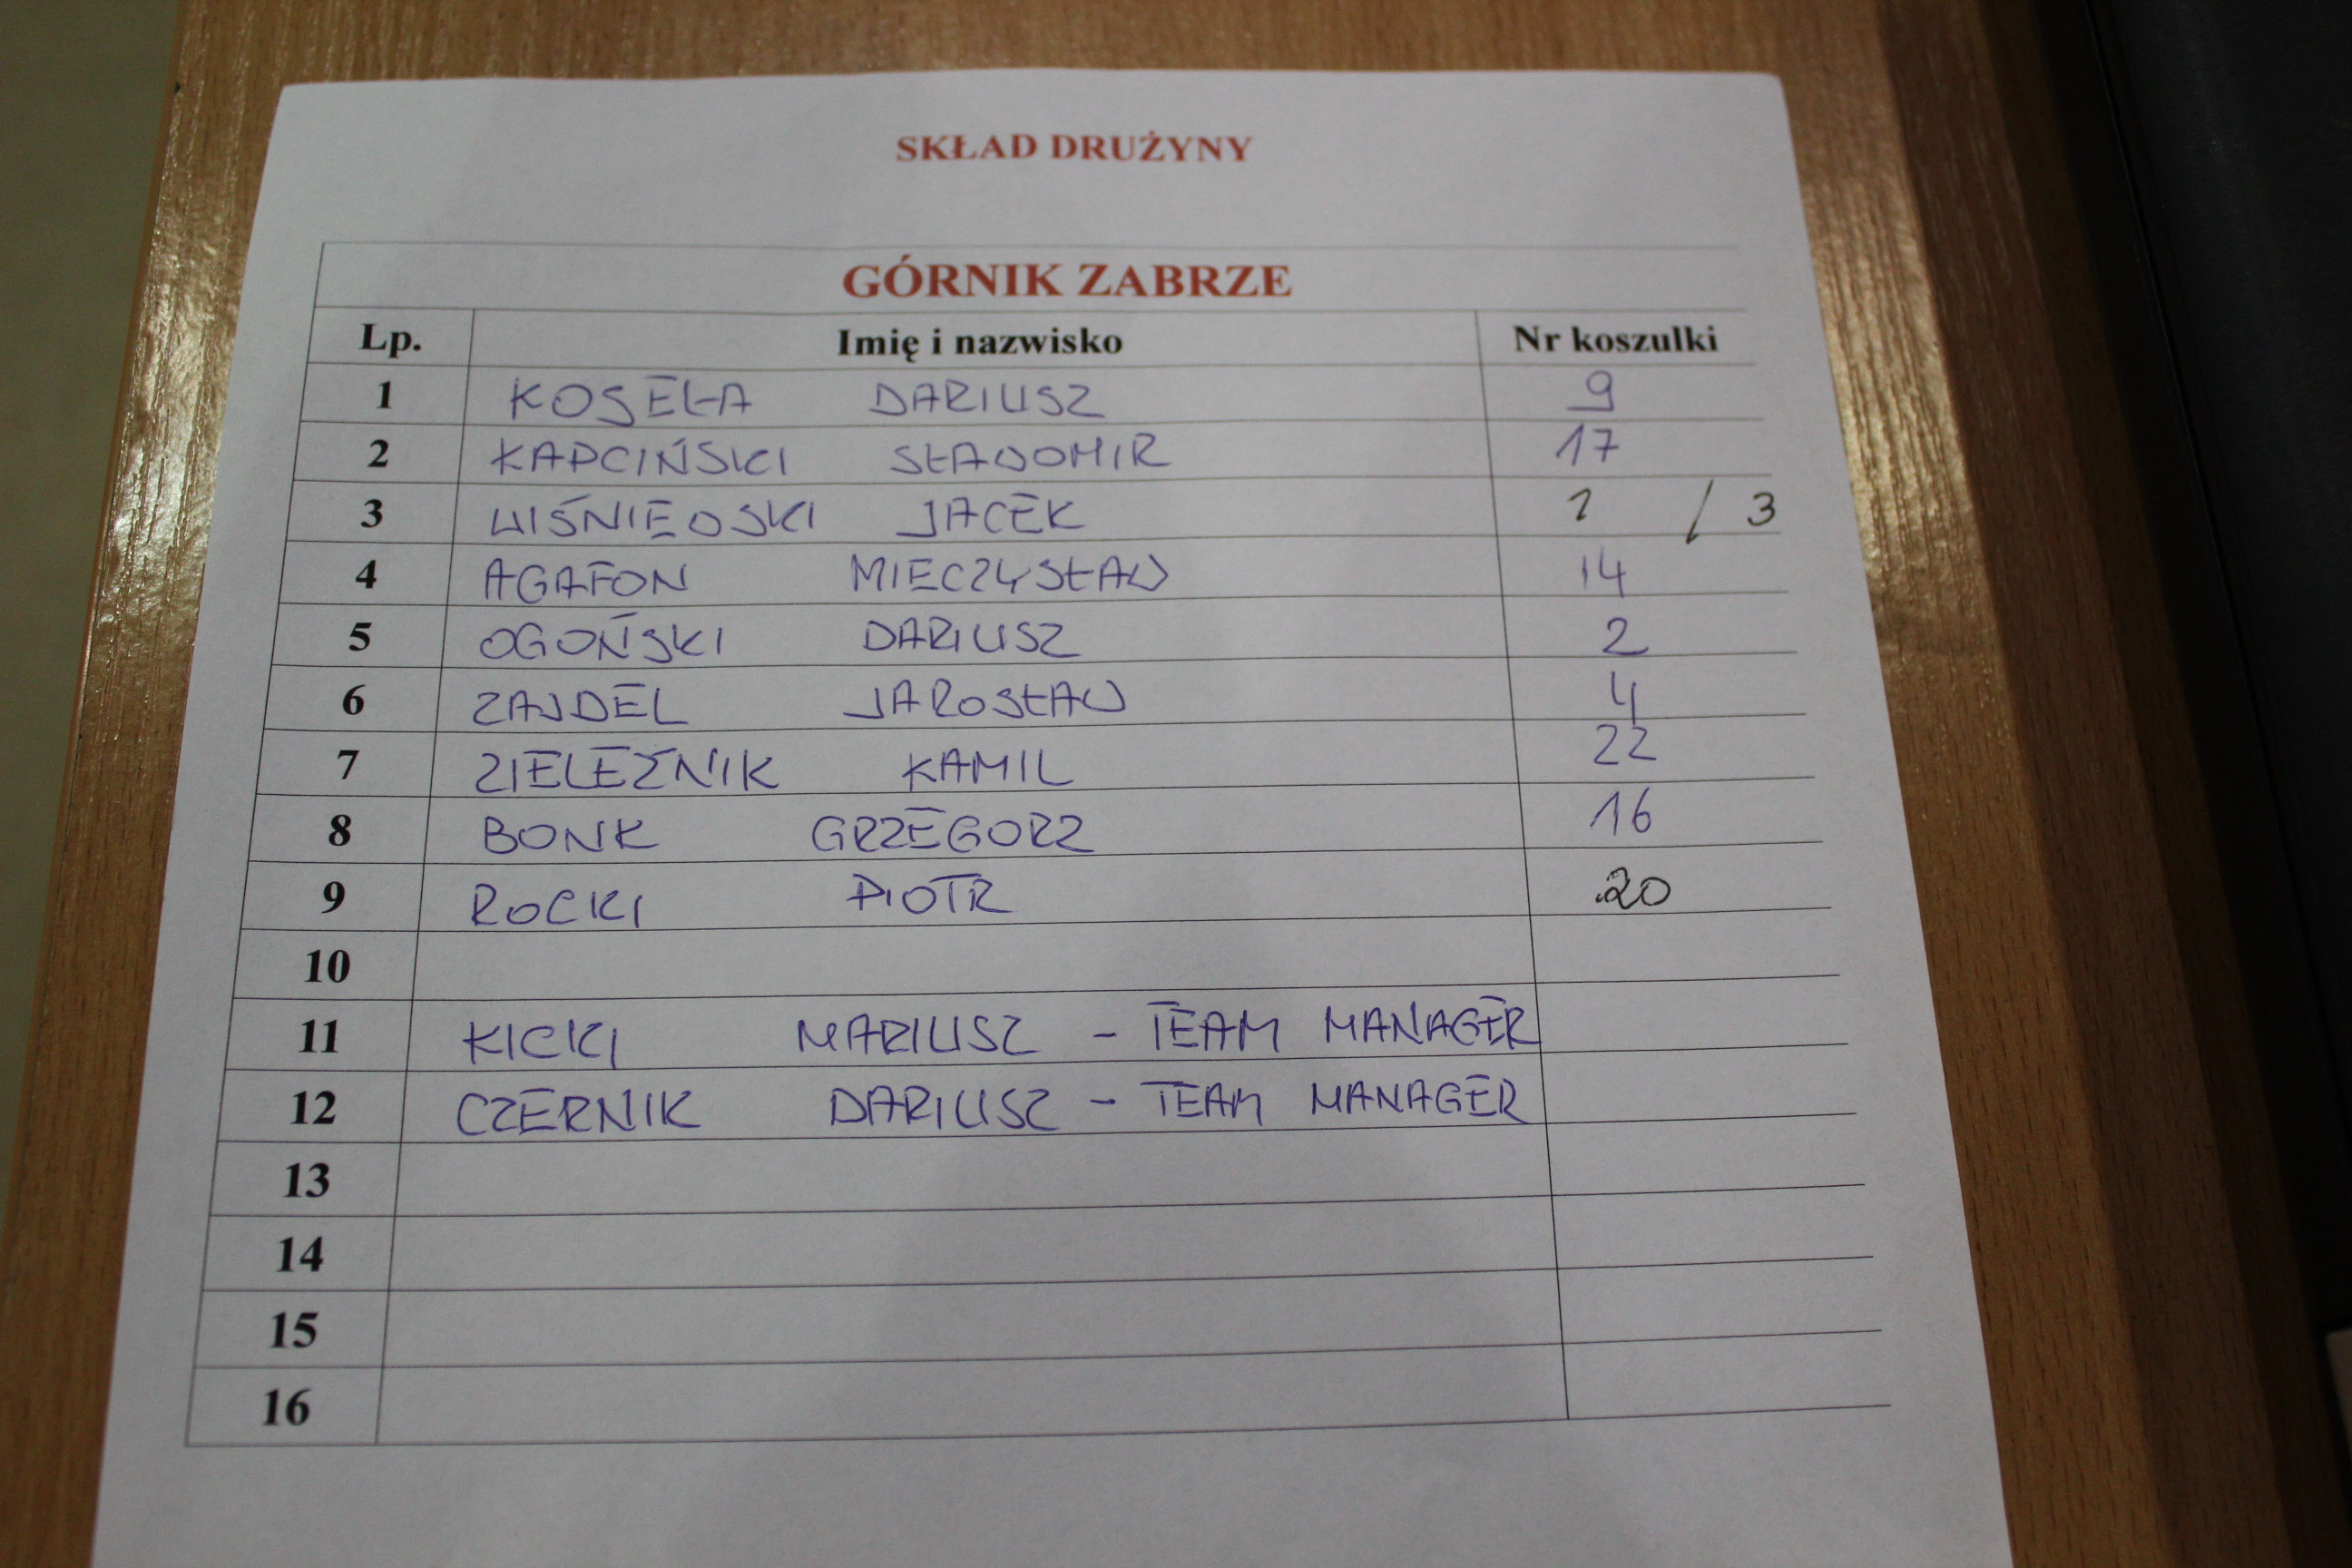 SKŁAD DRUŻYNY
GÓRNIK ZABRZE
Lp. Imię i nazwisko Nr koszulki
1 KOSEŁA DARIUSZ 9
2 KAPCIŃSKI SŁAWOMIR 17
3 WIŚNIEWSKI JACEK 1 / 3
4 AGAFON MIECZYSŁAW 14
5 OGOŃSKI DARIUSZ 2
6 ZAJDEL JAROSŁAW 4
7 ZIELEŹNIK KAMIL 22
8 BONK GRZEGORZ 16
9 ROCKI PIOTR 20
10
11 KICKI MARIUSZ - TEAM MANAGER
12 CZERNIK DARIUSZ - TEAM MANAGER
13
14
15
16